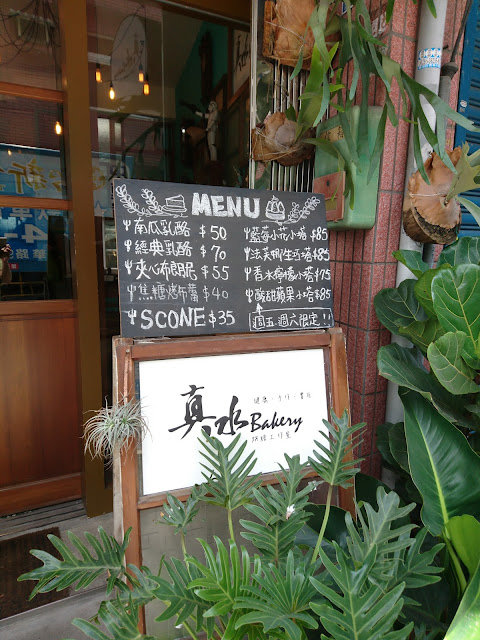 MENU
南瓜乳酪 $50
經典乳酪 $70
夾心布朗尼 $55
焦糖烤布蕾 $40
SCONE $35
藍莓小花小塔 $85
法芙娜生巧塔 $85
香水檸檬小塔 $75
酸甜蘋果小塔 $85
週五.週六限定!!
真水 Bakery
健康・手作・書房
烘焙工作室